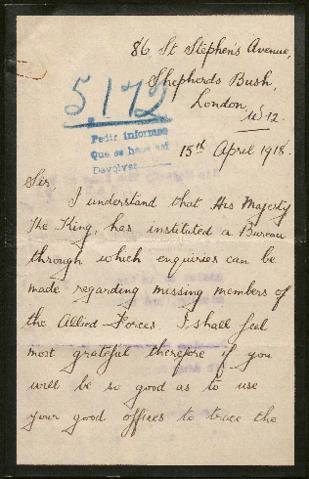 86 St Stephen's Avenue,
Shepherds Bush,
London,
W. 12.
5.172
Pedir informase
Que se
Devolver
15th April 1918.
Sir,
I understand that His Majesty
The King, has instituted a Bureau
through which enquiries can be
made regarding missing members of
the Allied Forces I shall feel
most grateful therefore if you
will be so good as to use
your good offices to trace the